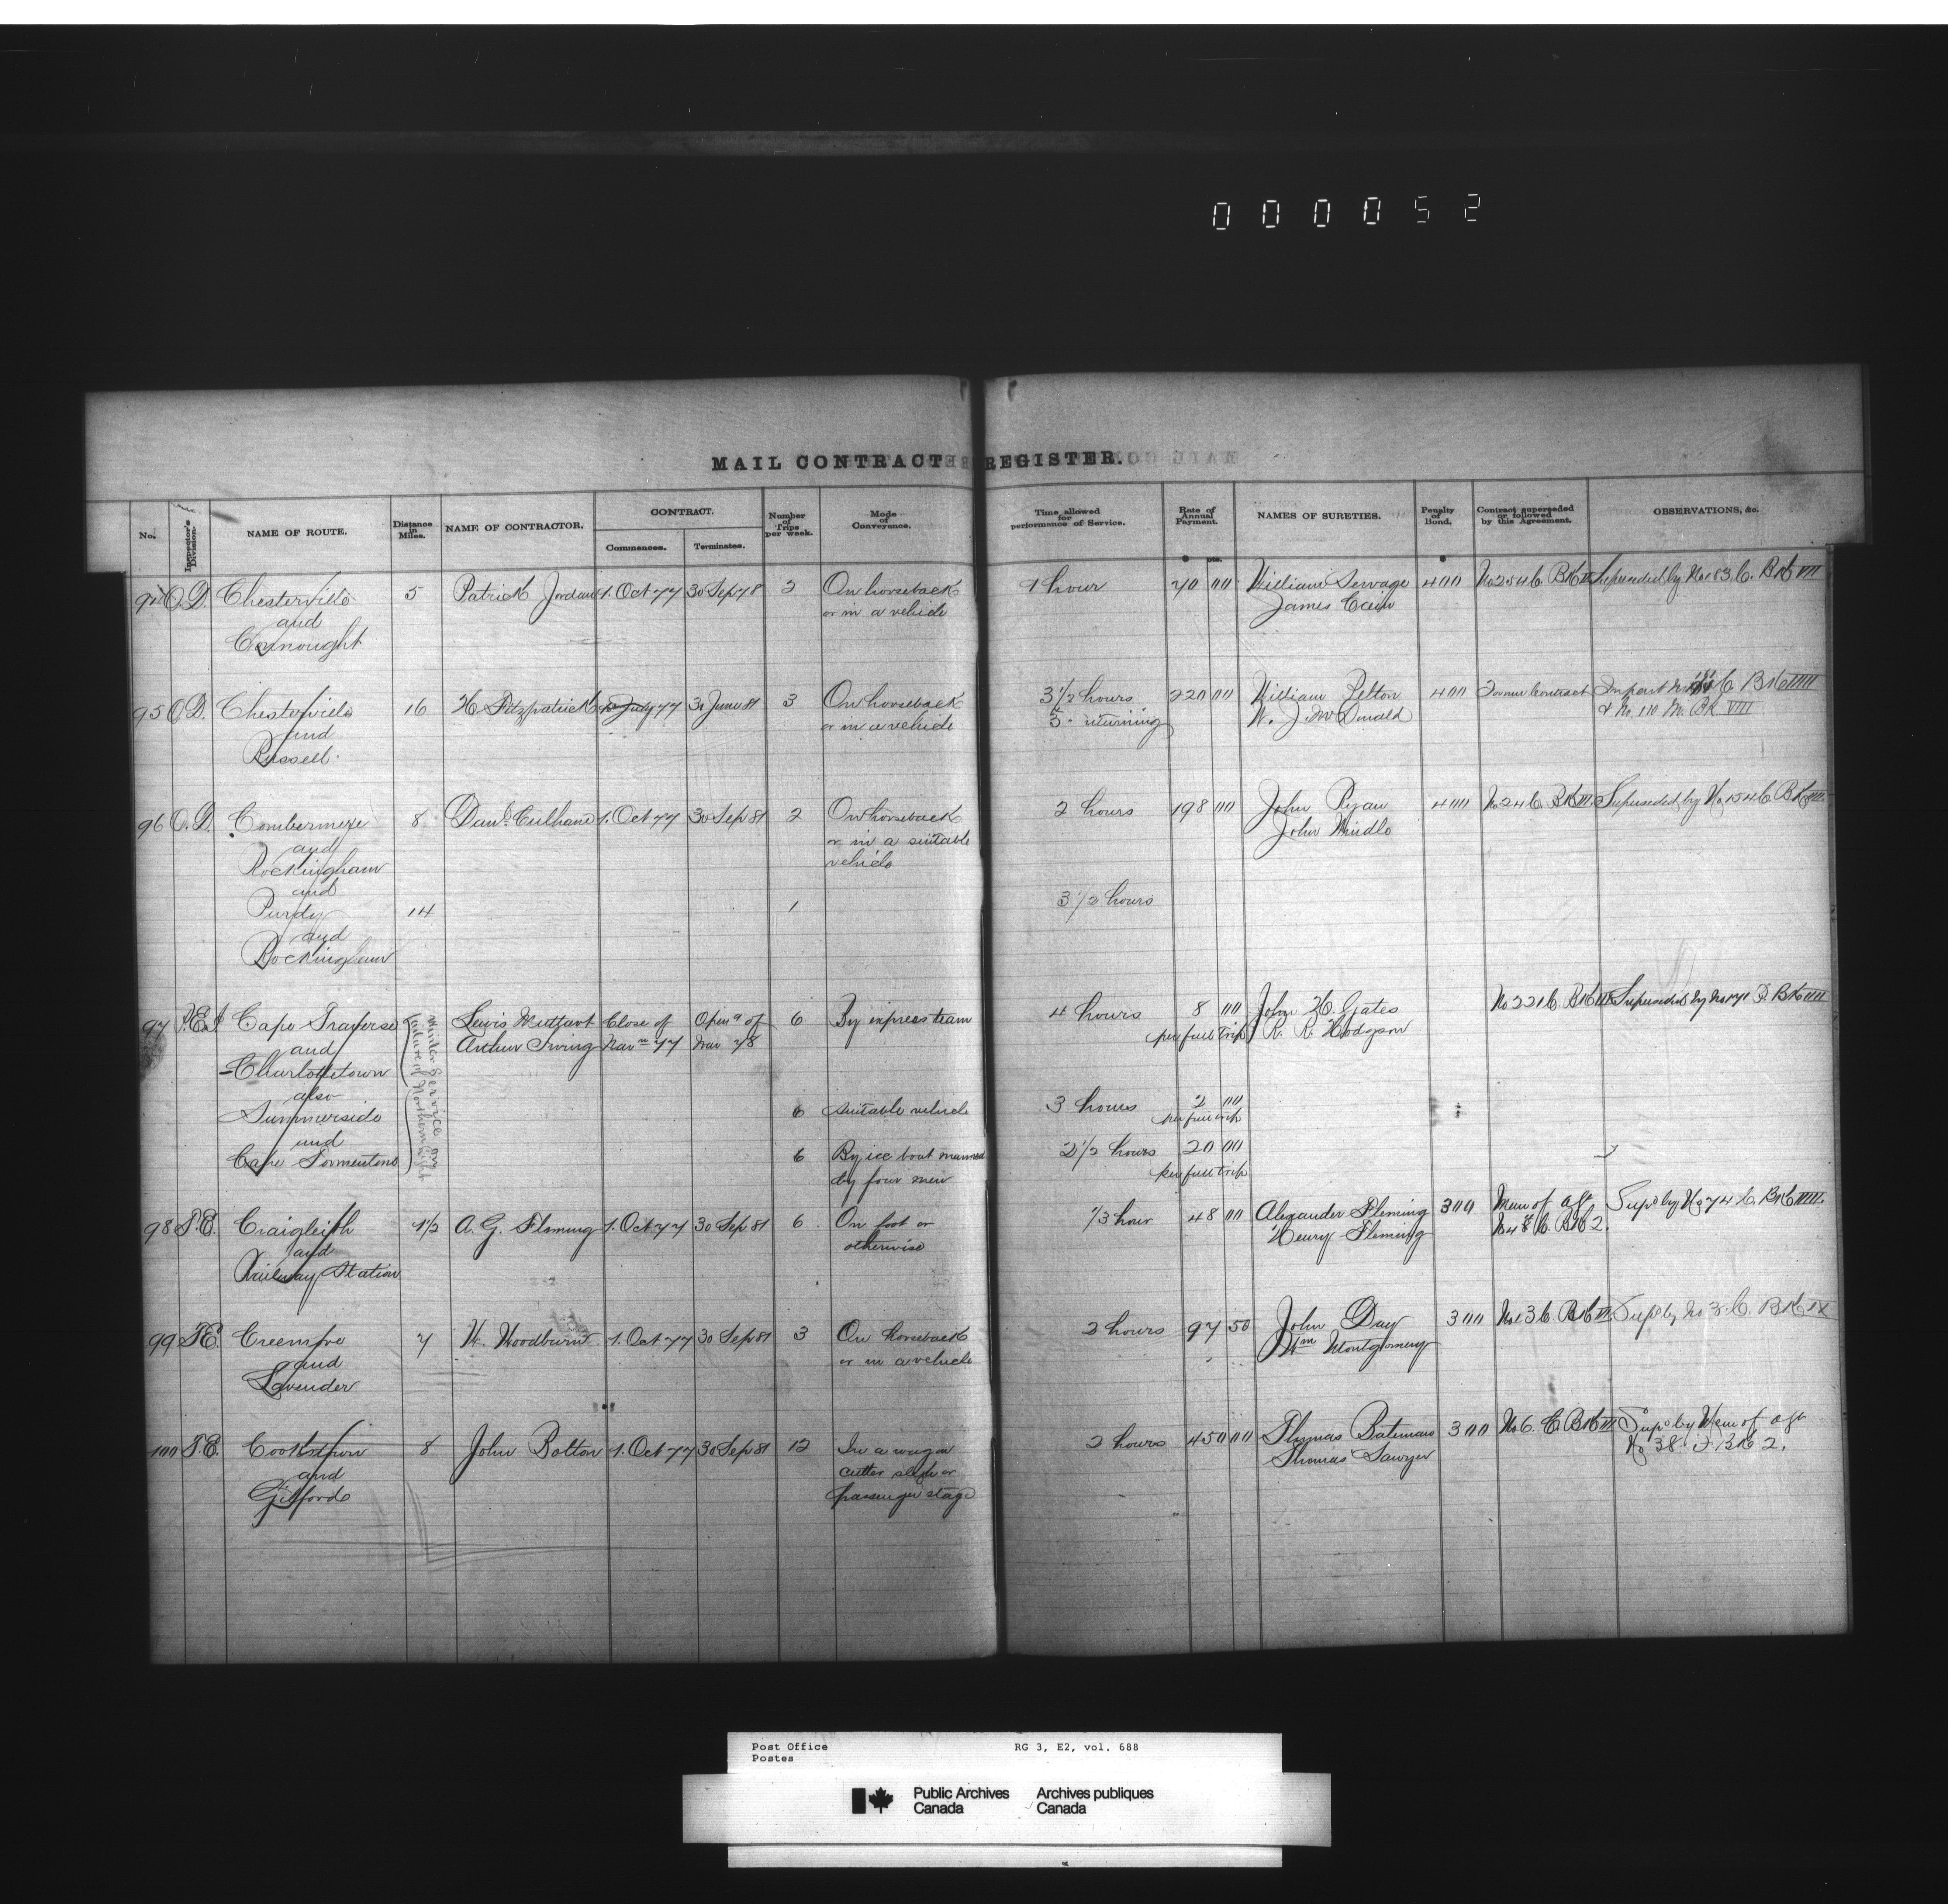 000052
MAIL CONTRACT REGISTER.
No. Inspector's Division. NAME OF ROUTE. Distance in Miles. NAME OF CONTRACTOR. CONTRACT. Commences. Terminates. Number of Trips per week. Mode of Conveyance. Time allowed for performance of Service. Rate of Annual Payment. NAMES OF SURETIES. Penalty of Bond. Contract superseded or followed by this Agreement. OBSERVATIONS, &c.
$ cts. $
94 O.D. Chesterville 5 Patrick Jordan 1. Oct 77 30 Sep 78 2 On horseback 1 hour 70 00 William 400 No 254 C. Bk Superseded by No 183 C. Bk VII
and or in a vehicle James
Connought
95 O.D. Chesterville 16 H. Fitzpatrick July 77 30 June 81 3 On horseback 3 1/2 hours 220 00 William Pelton 400 Former Contract In part C Bk VIII
and or in a vehicle 3 - returning W. J. McDonald & No. 110 M. Bk VIII
Russell.
96 O.D. Combermere 8 Danl. Culhane 1. Oct 77 30 Sep 81 2 On horseback 2 hours 198 00 John Ryan 400 No 24 C. Bk III Superseded by No 154 C Bk VIII
and or in a suitable John Windle
Rockingham vehicle
and
Purdy 14 1 3 1/2 hours
and
Rockingham
97 P.E.I. Cape Traverse Winter Service on failure of Northern Light Lewis Muttart Close of Open g of 6 By express team 4 hours 8 00 John H. Gates No 221 C. Bk III Superseded by No 171 D. Bk VIII
and Arthur Irving Nav n 77 Nav 78 per full trip R. R. Hodgson
Charlottetown
also
Summerside 6 suitable vehicle 3 hours 2 00
and per full trip
Cape Tormentine 6 By ice boat manned 2 1/2 hours 20 00
by four men per full trip
98 T.E. Craigleith 1/2 A. G. Fleming 1. Oct 77 30 Sep 81 6 On foot or 1/3 hour 48 00 Alexander Fleming 300 Mem of agt Supd by No 74 C. Bk VIII
and otherwise Henry Fleming No 48 C. Bk 2.
Railway Station
99 T.E. Creemore 7 W. Woodburn 1. Oct 77 30 Sep 81 3 On horseback 2 hours 97 50 John Day 300 No 13 C. Bk III Supd by No 3 C. Bk IX
and or in a vehicle Wm Montgomery
Lavender
100 T.E. Cookstown 8 John Bolton 1. Oct 77 30 Sep 81 12 In a wagon 2 hours 450 00 Thomas Bateman 300 No 6. C. Bk III Supd by Mem of agt
and cutter sleigh or Thomas Sawyer No 38. Bk 2.
Gilford passenger stage
Post Office RG 3, E2, vol. 688
Postes
Public Archives Archives publiques
Canada Canada